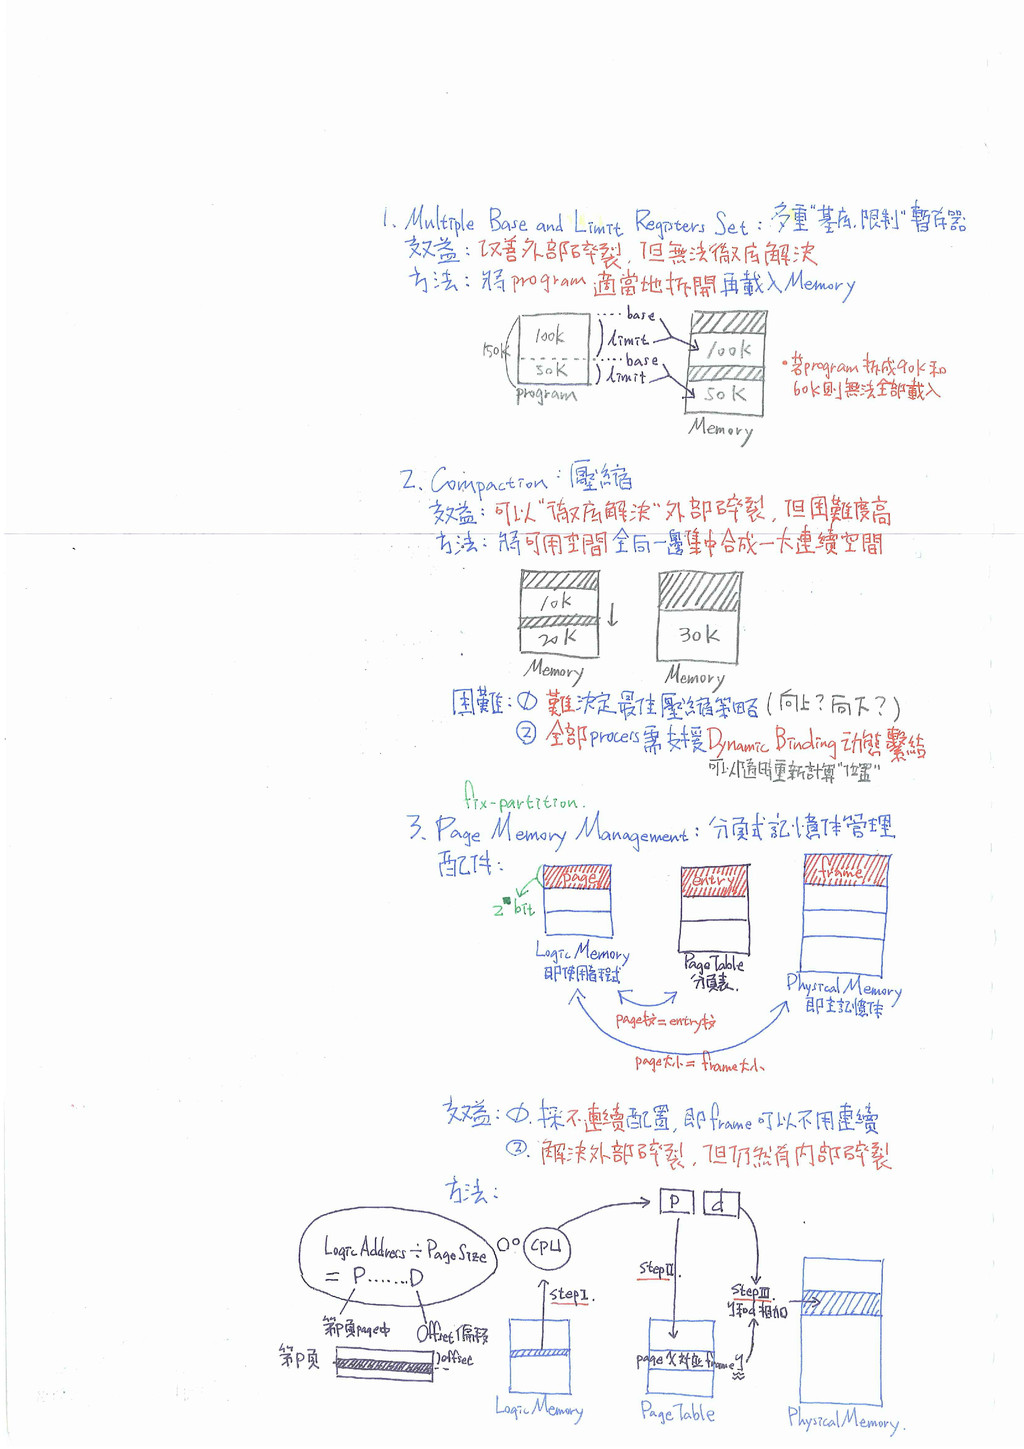 1. Multiple Base and Limit Registers Set：多重"基底.限制"暫存器
效益：改善外部碎裂，但無法徹底解決
方法：將program適當地拆開再載入Memory
150K
100K
50K
program
base
limit
base
limit
100K
50K
Memory
•若program拆成90K和
60K則無法全部載入
2. Compaction：壓縮
效益：可以"徹底解決"外部碎裂，但困難度高
方法：將可用空間全向一邊集中合成一大連續空間
10K
20K
Memory
30K
Memory
困難：① 難決定最佳壓縮策略(向上？向下？)
② 全部process需支援Dynamic Binding动態繫結
可以隨時重新計算"位置"
fix-partition.
3. Page Memory Management：分頁式記憶体管理
配件：
page
entry
frame
bit
Logic Memory
即使用者程式
Page Table
分頁表.
Physical Memory
即主記憶体
page数=entry数
page大小=frame大小
效益：①. 採不連續配置，即frame可以不用連續
②. 解決外部碎裂，但仍然有內部碎裂
方法：
P
d
Logic Address÷Page Size
= P.......D
CPU
step I.
step II.
step III.
和d相加
第P頁page中
Offset偏移
第P頁
offset
page X 対应 frame Y
Logic Memory
Page Table
Physical Memory.